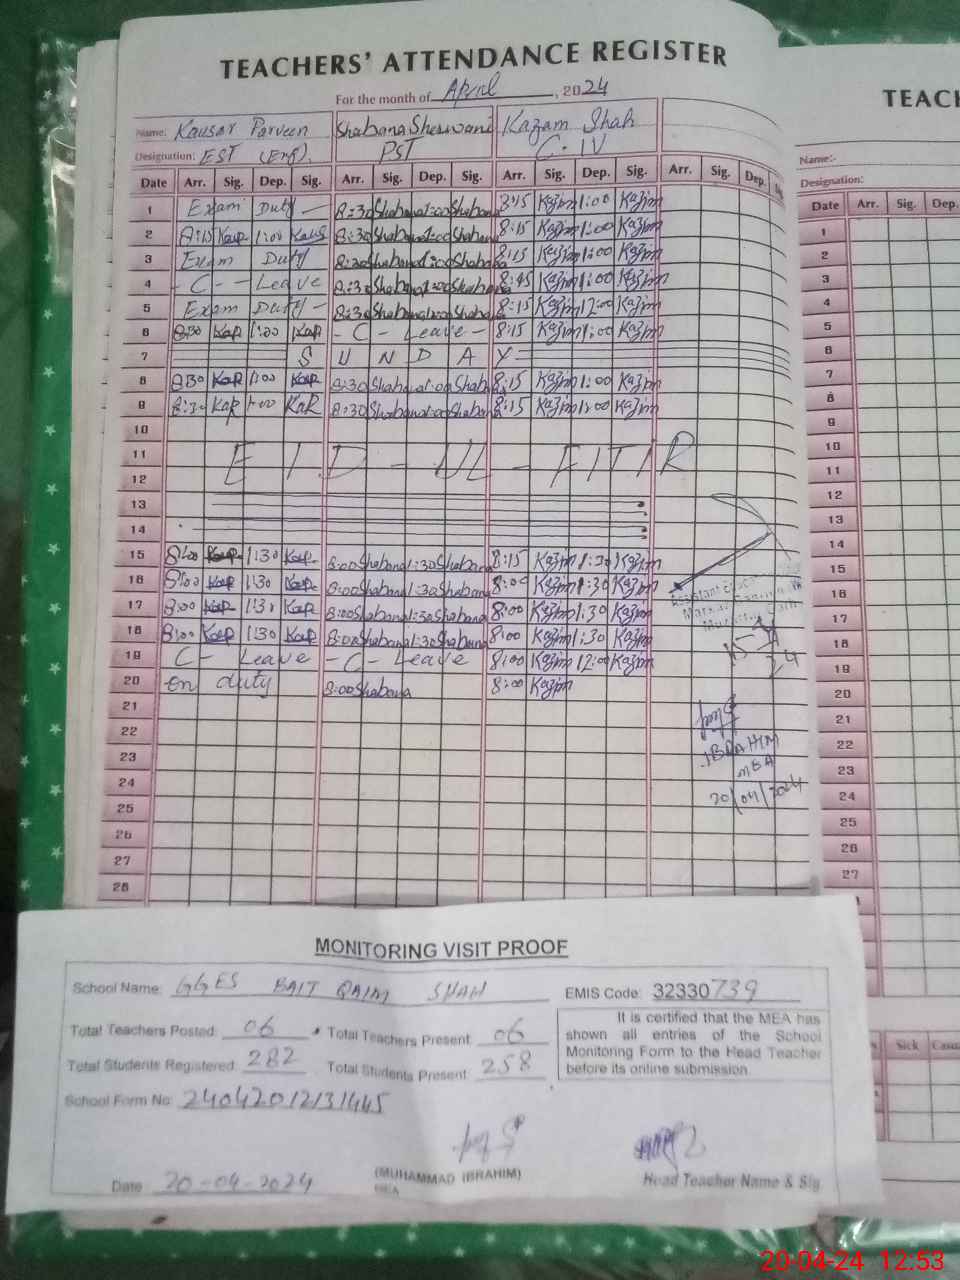 TEACHERS' ATTENDANCE REGISTER
For the month of April, 2024
Name: Kausar Parveen Shabana Sherwani Kazam Shah
Designation: EST (Eng). PST C.IV
Date Arr. Sig. Dep. Sig. Arr. Sig. Dep. Sig. Arr. Sig. Dep. Sig. Arr. Sig. Dep.
1 Exam Duty - 8:30 Shabana 1:00 Shabana 8:15 Kazim 1:00 Kazim
2 8:15 Kap 1:00 8:30 Shabana 1:00 Shabana 8:15 Kazim 1:00 Kazim
3 Exam Duty 8:30 Shabana 1:00 Shabana 8:15 Kazim 1:00 Kazim
4 - C - - Leave 8:30 Shabana 1:00 Shabana 8:45 Kazim 1:00 Kazim
5 Exam Duty - 8:30 Shabana 1:00 Shabana 8:15 Kazim 12:00 Kazim
6 8:30 Kap 1:00 Kap - C - Leave - 8:15 Kazim 1:00 Kazim
7 S U N D A Y
8 8:30 Kap 1:00 Kap 8:30 Shabana 1:00 Shabana 8:15 Kazim 1:00 Kazim
9 8:30 KaR 1:00 KaR 8:30 Shabana 1:00 Shabana 8:15 Kazim 1:00 Kazim
10
11 EID - UL - FITIR
12
13
14
15 8:00 Kap 1:30 Kap 8:00 Shabana 1:30 Shabana 8:15 Kazim 1:30 Kazim
16 8:00 Kap 1:30 Kap 8:00 Shabana 1:30 Shabana 8:00 Kazim 1:30 Kazim
17 8:00 Kap 1:30 Kap 8:00 Shabana 1:30 Shabana 8:00 Kazim 1:30 Kazim
18 8:00 Kap 1:30 Kap 8:00 Shabana 1:30 Shabana 8:00 Kazim 1:30 Kazim
19 C - Leave - C - Leave 8:00 Kazim 12:00 Kazim
20 on duty 8:00 Shabana 8:00 Kazim
21
22
23
24
25
26
27
28
IBRAHIM
MEA
20/04/2024
TEACH
Name:-
Designation:
Date Arr. Sig. Dep.
1
2
3
4
5
6
7
8
9
10
11
12
13
14
15
16
17
18
19
20
21
22
23
24
25
26
27
Sick Casua
MONITORING VISIT PROOF
School Name: GGES BAIT QAIM SHAH EMIS Code: 32330739
Total Teachers Posted: 06 Total Teachers Present: 06
Total Students Registered: 282 Total Students Present: 258
It is certified that the MEA has
shown all entries of the School
Monitoring Form to the Head Teacher
before its online submission.
School Form No: 24042012131445
Date 20-04-2024 (MUHAMMAD IBRAHIM) Head Teacher Name & Sig.
MEA
20-04-24 12:53